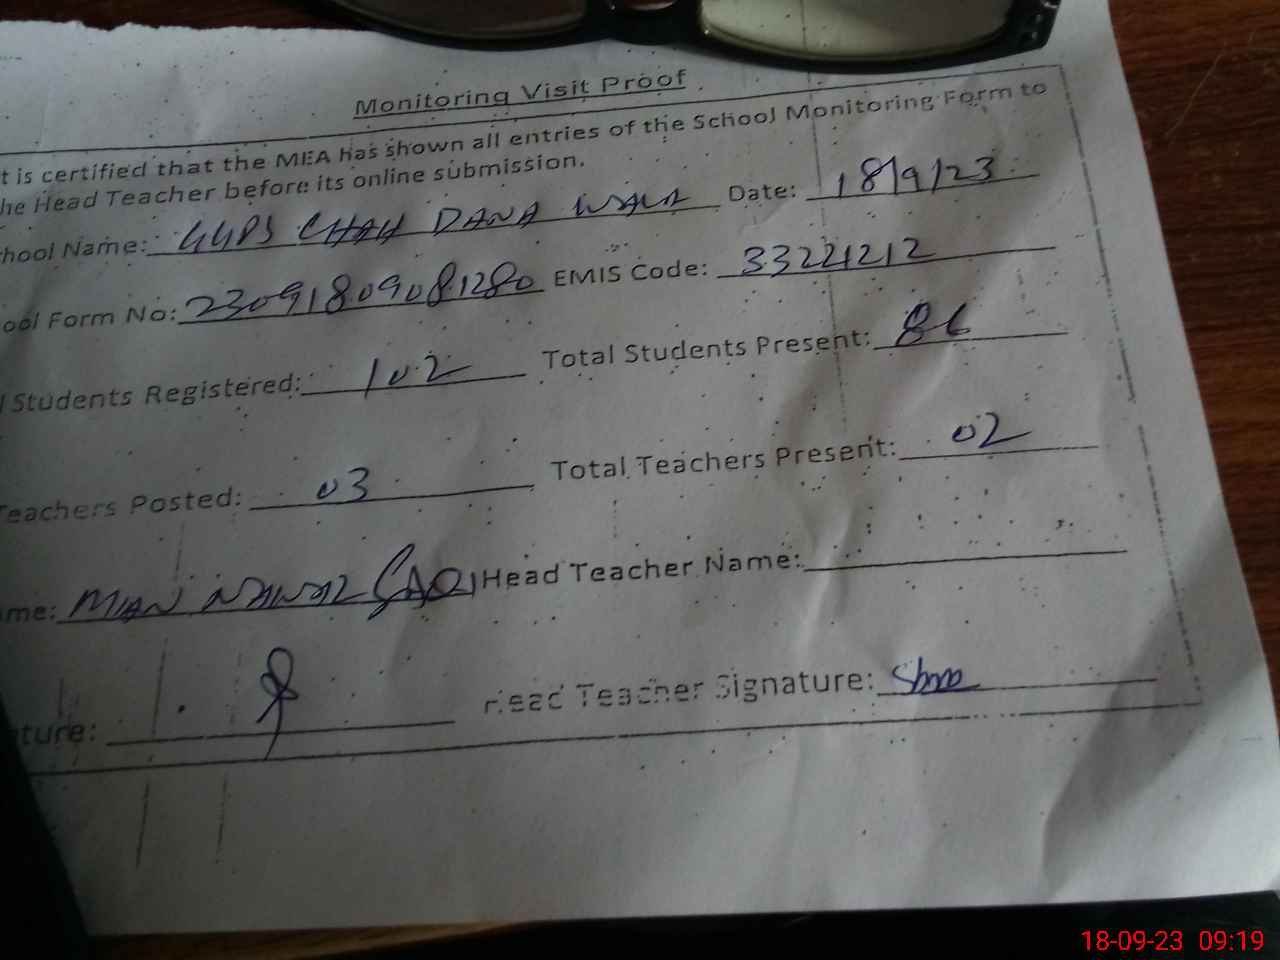 Monitoring Visit Proof
t is certified that the MEA has shown all entries of the School Monitoring Form to
he Head Teacher before its online submission.
hool Name: GGPS CHAH DANA WALA Date: 18/9/23
ool Form No: 23091809081280 EMIS Code: 33221212
l Students Registered: 102 Total Students Present: 86
Teachers Posted: 03 Total Teachers Present: 02
me: MIAN NAWAZ Head Teacher Name:
ature: Head Teacher Signature:
18-09-23 09:19